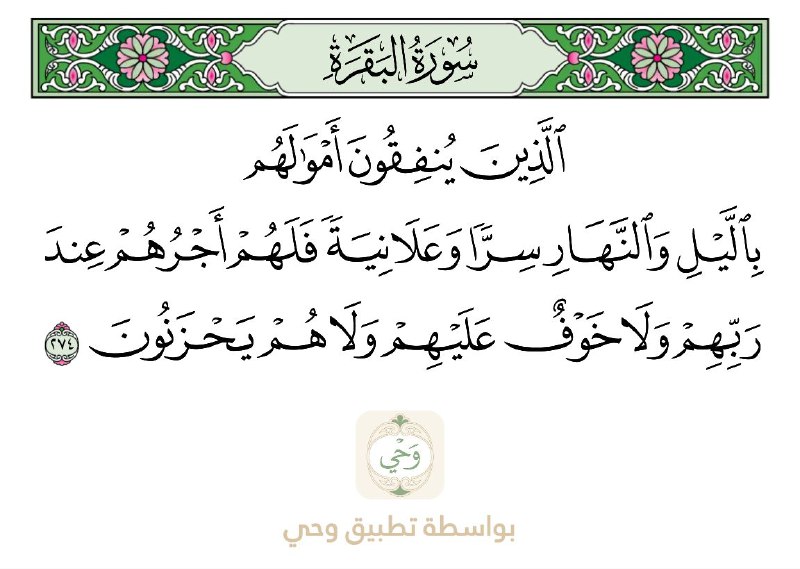 سُورَةُ البَقَرَةِ
ٱلَّذِينَ يُنفِقُونَ أَمۡوَٰلَهُم
بِٱلَّيۡلِ وَٱلنَّهَارِ سِرّٗا وَعَلَانِيَةٗ فَلَهُمۡ أَجۡرُهُمۡ عِندَ
رَبِّهِمۡ وَلَا خَوۡفٌ عَلَيۡهِمۡ وَلَا هُمۡ يَحۡزَنُونَ ٢٧٤
وَحْي
بواسطة تطبيق وحي